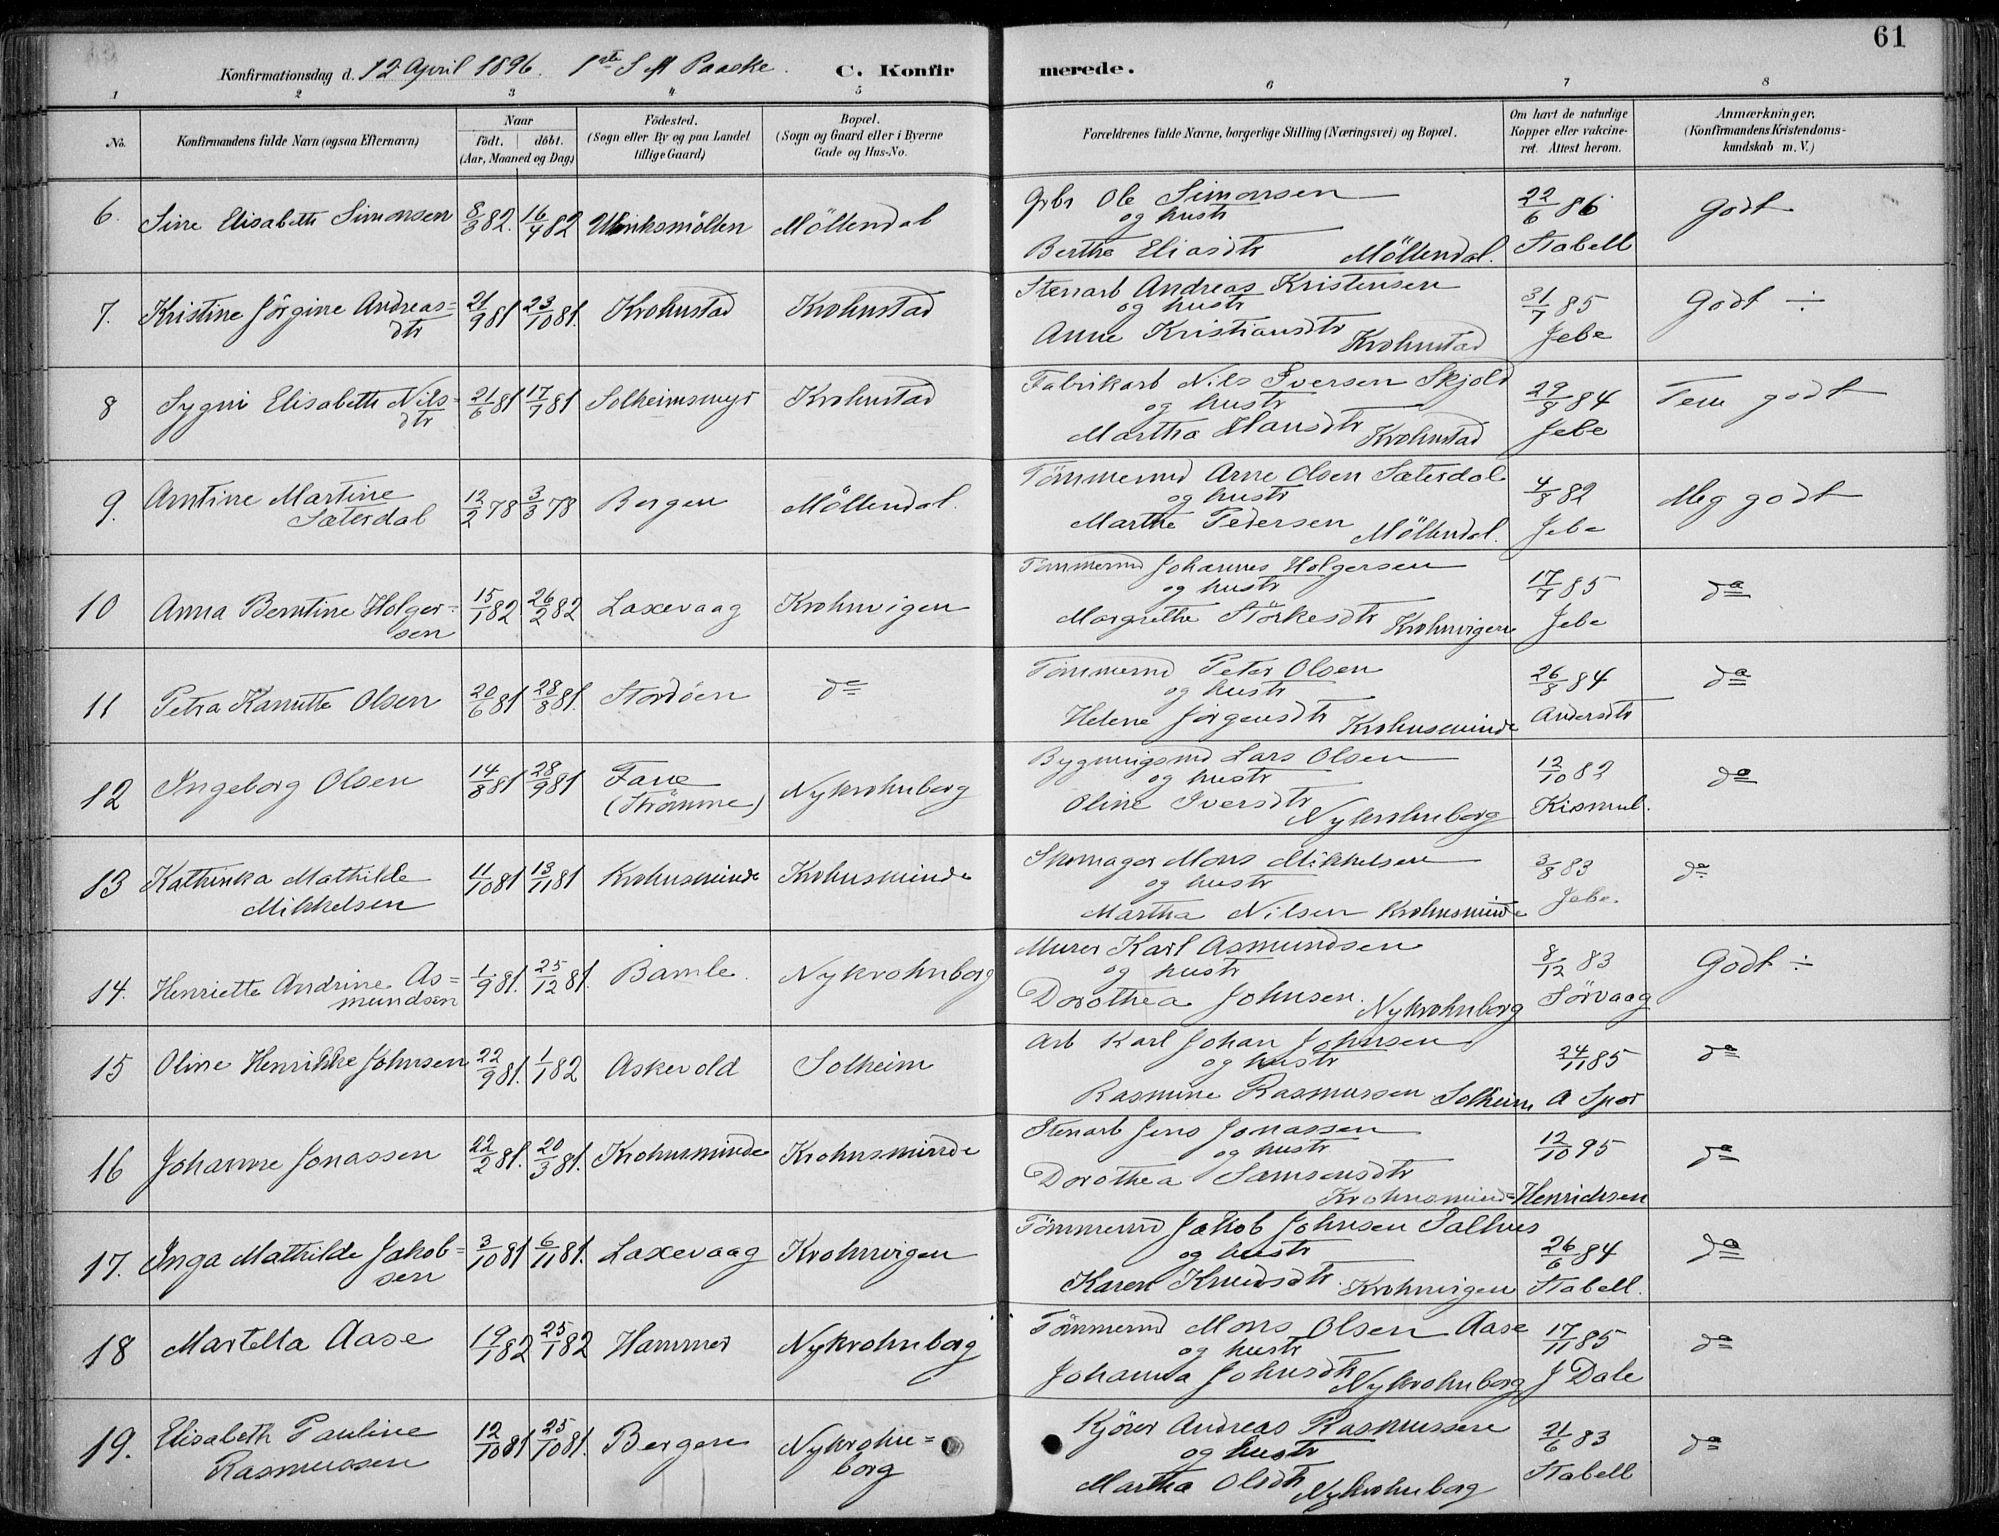 61
Konfirmationsdag d. 12 April 1896. 1ste S M Paaske. C. Konfirmerede.
1 2 3 4 5 6 7 8
No.
Konfirmandens fulde Navn (ogsaa Efternavn)
Naar
födt. döbt.
(Aar, Maaned og Dag)
Födested.
(Sogn eller By og paa Landet
tillige Gaard)
Bopæl.
(Sogn og Gaard eller i Byerne
Gade og Hus-No.
Forældrenes fulde Navne, borgerlige Stilling (Næringsvei) og Bopæl.
Om havt de naturlige
Kopper eller vakcine-
ret. Attest herom.
Anmærkninger.
(Konfirmandens Kristendoms-
kundskab m. V.)
6. Sine Elisabeth Simonsen 8/3 82. 16/4 82 Möllendal
Gbr Ole Simonsen
og hustr
Berthe Eliasdtr Möllendal.
22/6 86
Stabell
Godt
7. Kristine Jörgine Andreas=
dtr
21/9 81 23/10 81. Krohnstad Krohnstad
Stenarb Andreas Kristensen
og hustr
Anne Kristiansdtr Krohnstad
31/7 85
Jebe
Godt ÷
8 Sygni Elisabeth Nils=
dtr
21/6 81 17/7 81 Solheimsmyr Krohnstad
Fabrikarb Nils Iversen Skjold
og hustr
Martha Hansdtr Krohnstad
29/9 84
Jebe
Tem godt
9. Arntine Martine
Sætersdal
12/2 78 3/3 78 Bergen Möllendal.
Tömmermd Arne Olsen Sætersdal
og hustr
Marthe Pedersen Möllendal.
4/8 82
Jebe
Meg godt
10 Anna Berntine Holger=
sen
15/1 82 26/2 82 Laxevaag Krohnvigen
Tömmermd Johannes Holgersen
og hustr
Margrethe Störkesdtr Krohnvigen
17/7 85
Jebe
do
11 Petra Kanutte Olsen 20/6 81 28/8 81. Stordöen do
Tömmermd Peter Olsen
og hustr
Helene Jörgensdtr Krohnsminde
26/8 84
Andersdtr
do
12 Ingeborg Olsen 14/8 81 28/9 81 Fane
(Strömme) Nykrohnborg
Bygningsmd Lars Olsen
og hustr
Oline Iversdtr
Nykrohnborg
12/10 82
Kismul.
do
13 Kathinka Mathilde
Mikkelsen
11/10 81 13/11 81 Krohnsminde Krohnsminde
Skomager Mons Mikkelsen
og hustr
Martha Nilsen Krohnsminde
3/8 83
Jebe.
do
14. Henriette Andrine As=
mundsen
1/9 81. 25/12 81. Bamle. Nykrohnborg
Murer Karl Asmundsen
og hustr
Dorothea Johnsen. Nykrohnborg
8/12 83
Sörvaag
Godt ÷
15 Oline Henrikke Johnsen 22/9 81. 1/1 82 Askevold Solheim
Arb Karl Johan Johnsen
og hustr
Rasmine Rasmussen Solheim
24/11 85
A Spor
do
16 Johanne Jonassen 22/2 81. 20/3 81. Krohnsminde Krohnsminde
Stenarb Jens Jonassen
og hustr
Dorothea Samsonsdtr
Krohnsmind=
12/10 95
Henrichsen
do
17. Inga Mathilde Jakob=
sen
3/10 81 6/11 81. Laxevaag Krohnvigen
Tömmermd Jakob Johnsen Salhus
og hustr
Karen Knudsdtr. Krohnvigen
26/6 84
Stabell.
do
18 Martella Aase 19/1 82 25/1 82 Hammer Nykrohnborg
Tömmermd Mons Olsen Aase
og hustr
Johanna Johnsdtr Nykrohnborg
17/11 85
J Dale
do
19. Elisabeth Pauline
Rasmussen
12/10 81 25/10 81. Bergen Nykrohn=
borg
Kjörer Andreas Rasmussen
og hustr
Martha Olsdtr Nykrohnborg
21/6 83
Stabell
do